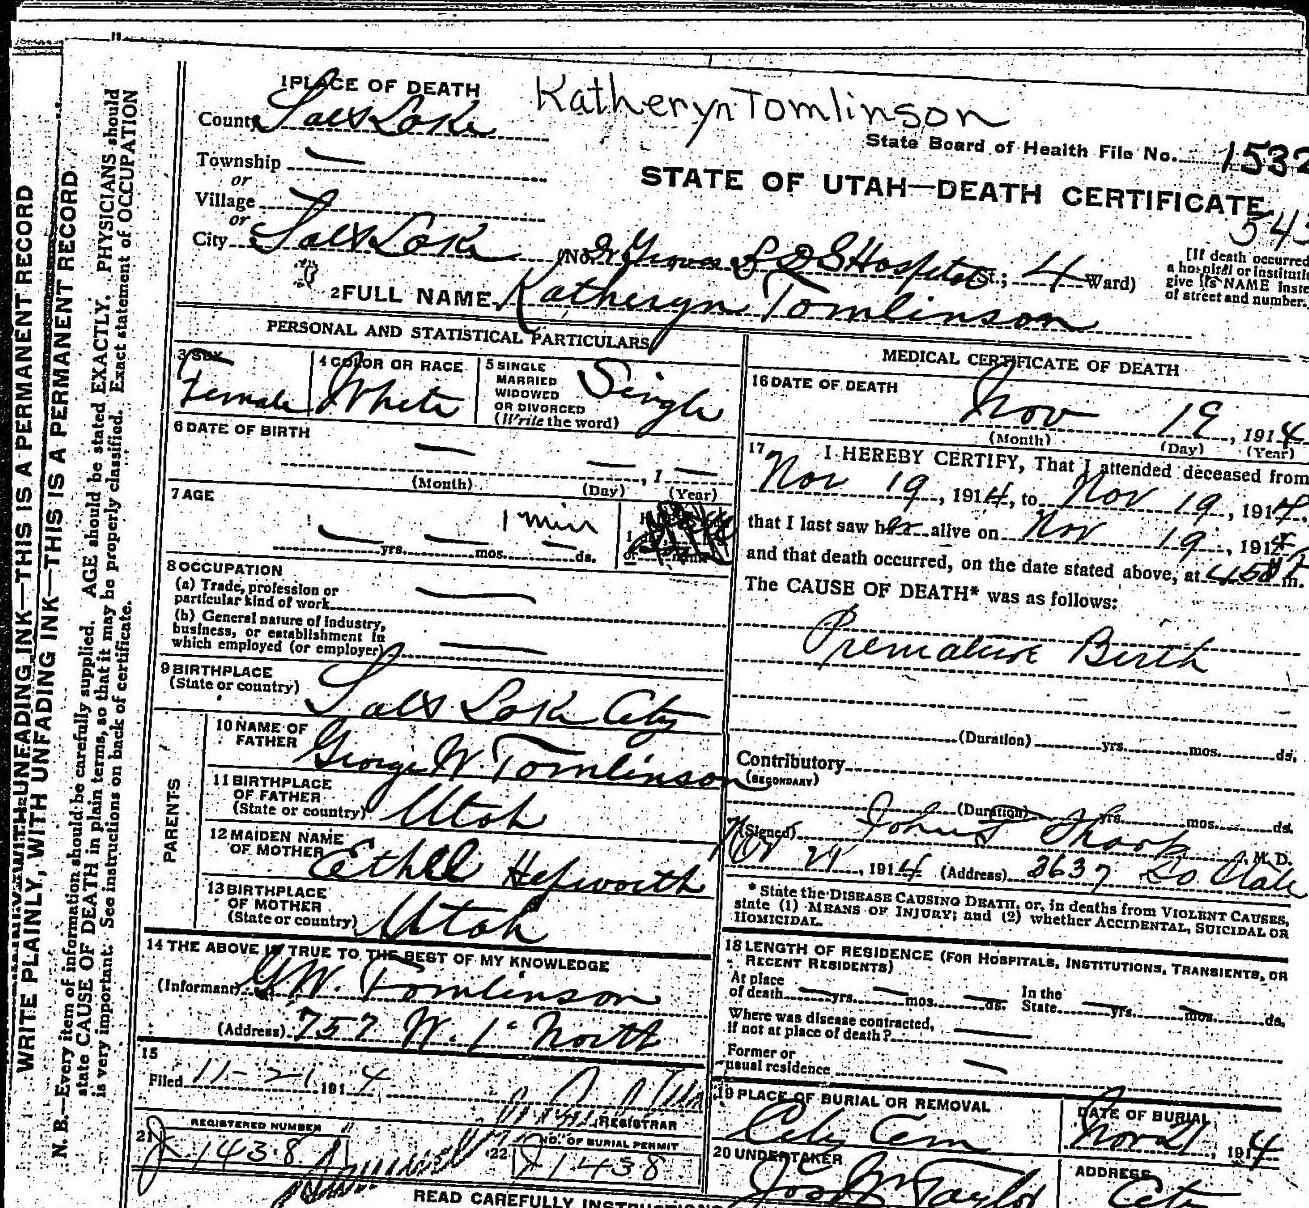 WRITE PLAINLY, WITH UNFADING INK—THIS IS A PERMANENT RECORD
WRITE PLAINLY, WITH UNFADING INK—THIS IS A PERMANENT RECORD
N. B.—Every item of information should be carefully supplied. AGE should be stated EXACTLY. PHYSICIANS should
state CAUSE OF DEATH in plain terms, so that it may be properly classified. Exact statement of OCCUPATION
is very important. See instructions on back of certificate.
1 PLACE OF DEATH
Katheryn Tomlinson
County Salt Lake
State Board of Health File No. 1532
Township —
or
STATE OF UTAH—DEATH CERTIFICATE
Village
or
543
City Salt Lake (No. Groves L D S Hospital St.; 4 Ward)
[If death occurred
a hospital or instituti
give its NAME inste
of street and number.
2 FULL NAME Katheryn Tomlinson
PERSONAL AND STATISTICAL PARTICULARS
3 SEX
Female
4 COLOR OR RACE
White
5 SINGLE
MARRIED
WIDOWED
OR DIVORCED
(Write the word)
Single
6 DATE OF BIRTH
— — , 1 —
(Month) (Day) (Year)
7 AGE
1 min
— yrs. — mos. — ds.
8 OCCUPATION
(a) Trade, profession or
particular kind of work —
(b) General nature of industry,
business, or establishment in
which employed (or employer) —
9 BIRTHPLACE
(State or country) Salt Lake City
PARENTS
10 NAME OF
FATHER George W. Tomlinson
11 BIRTHPLACE
OF FATHER
(State or country) Utah
12 MAIDEN NAME
OF MOTHER Ethel Hepworth
13 BIRTHPLACE
OF MOTHER
(State or country) Utah
14 THE ABOVE IS TRUE TO THE BEST OF MY KNOWLEDGE
(Informant) G.W. Tomlinson
(Address) 757 W. 1st North
15
Filed 11-21 1914
REGISTRAR
21 REGISTERED NUMBER
J 1438
22 NO. OF BURIAL PERMIT
J 1438
MEDICAL CERTIFICATE OF DEATH
16 DATE OF DEATH
Nov 19, 1914
(Month) (Day) (Year)
17 I HEREBY CERTIFY, That I attended deceased from
Nov 19, 1914, to Nov 19, 1914,
that I last saw her alive on Nov 19, 1914
and that death occurred, on the date stated above, at m.
The CAUSE OF DEATH* was as follows:
Premature Birth
(Duration) yrs. mos. ds.
Contributory
(SECONDARY)
(Duration) yrs. mos. ds.
(Signed) John T Sharp, M. D.
Nov 21, 1914 (Address) 3637 So State
* State the DISEASE CAUSING DEATH, or, in deaths from VIOLENT CAUSES,
state (1) MEANS OF INJURY; and (2) whether ACCIDENTAL, SUICIDAL OR
HOMICIDAL.
18 LENGTH OF RESIDENCE (FOR HOSPITALS, INSTITUTIONS, TRANSIENTS, OR
RECENT RESIDENTS)
At place
of death — yrs. — mos. — ds. In the
State — yrs. — mos. ds.
Where was disease contracted,
if not at place of death? —
Former or
usual residence —
19 PLACE OF BURIAL OR REMOVAL
City Cem
DATE OF BURIAL
Nov 21, 1914
20 UNDERTAKER
Jos Wm Taylor
ADDRESS
City
READ CAREFULLY INSTRUCTIONS